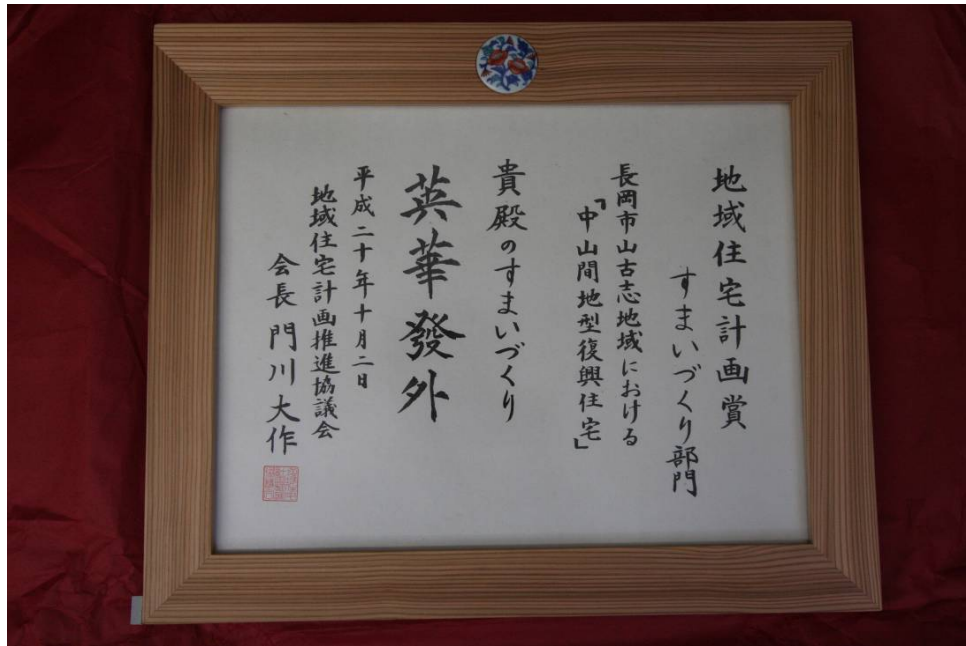 地域住宅計画賞
すまいづくり部門
長岡市山古志地域における
「中山間地型復興住宅」
貴殿のすまいづくり
英華發外
平成二十年十月二日
地域住宅計画推進協議会
会長門川大作